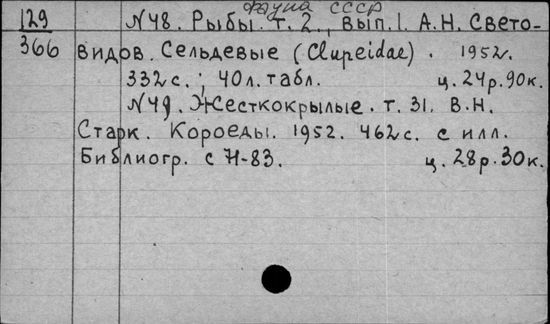 фауна СССР
129 N48. Рыбы. т. 2., вып. 1. А.Н. Свето-
366 видов. Сельдевые (Clupeidae). 1952.
332 с.; 40 л. табл. ц. 24 р. 90 к.
N49. Жесткокрылые. т. 31. В.Н.
Старк. Короеды. 1952. 462 с. с илл.
Библиогр. с 71-83. ц. 28 р. 30 к.